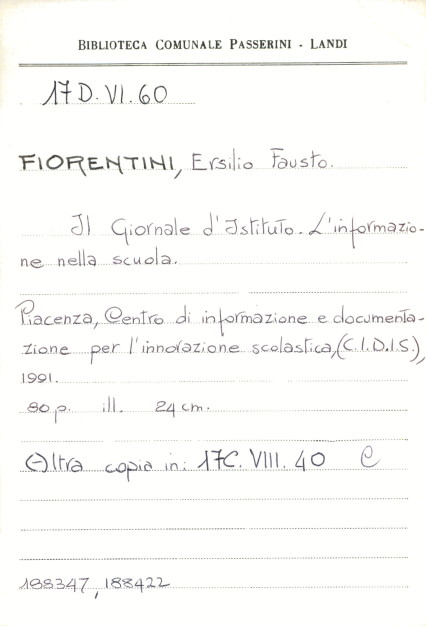 BIBLIOTECA COMUNALE PASSERINI - LANDI
17 D. VI. 60
FIORENTINI, Ersilio Fausto.
Il Giornale d'Istituto. L'informazio-
ne nella scuola.
Piacenza, Centro di informazione e documenta-
zione per l'innovazione scolastica, (C.I.D.I.S),
1991.
80 p. ill. 24 cm.
Altra copia in: 17C. VIII. 40 C
188347, 188422